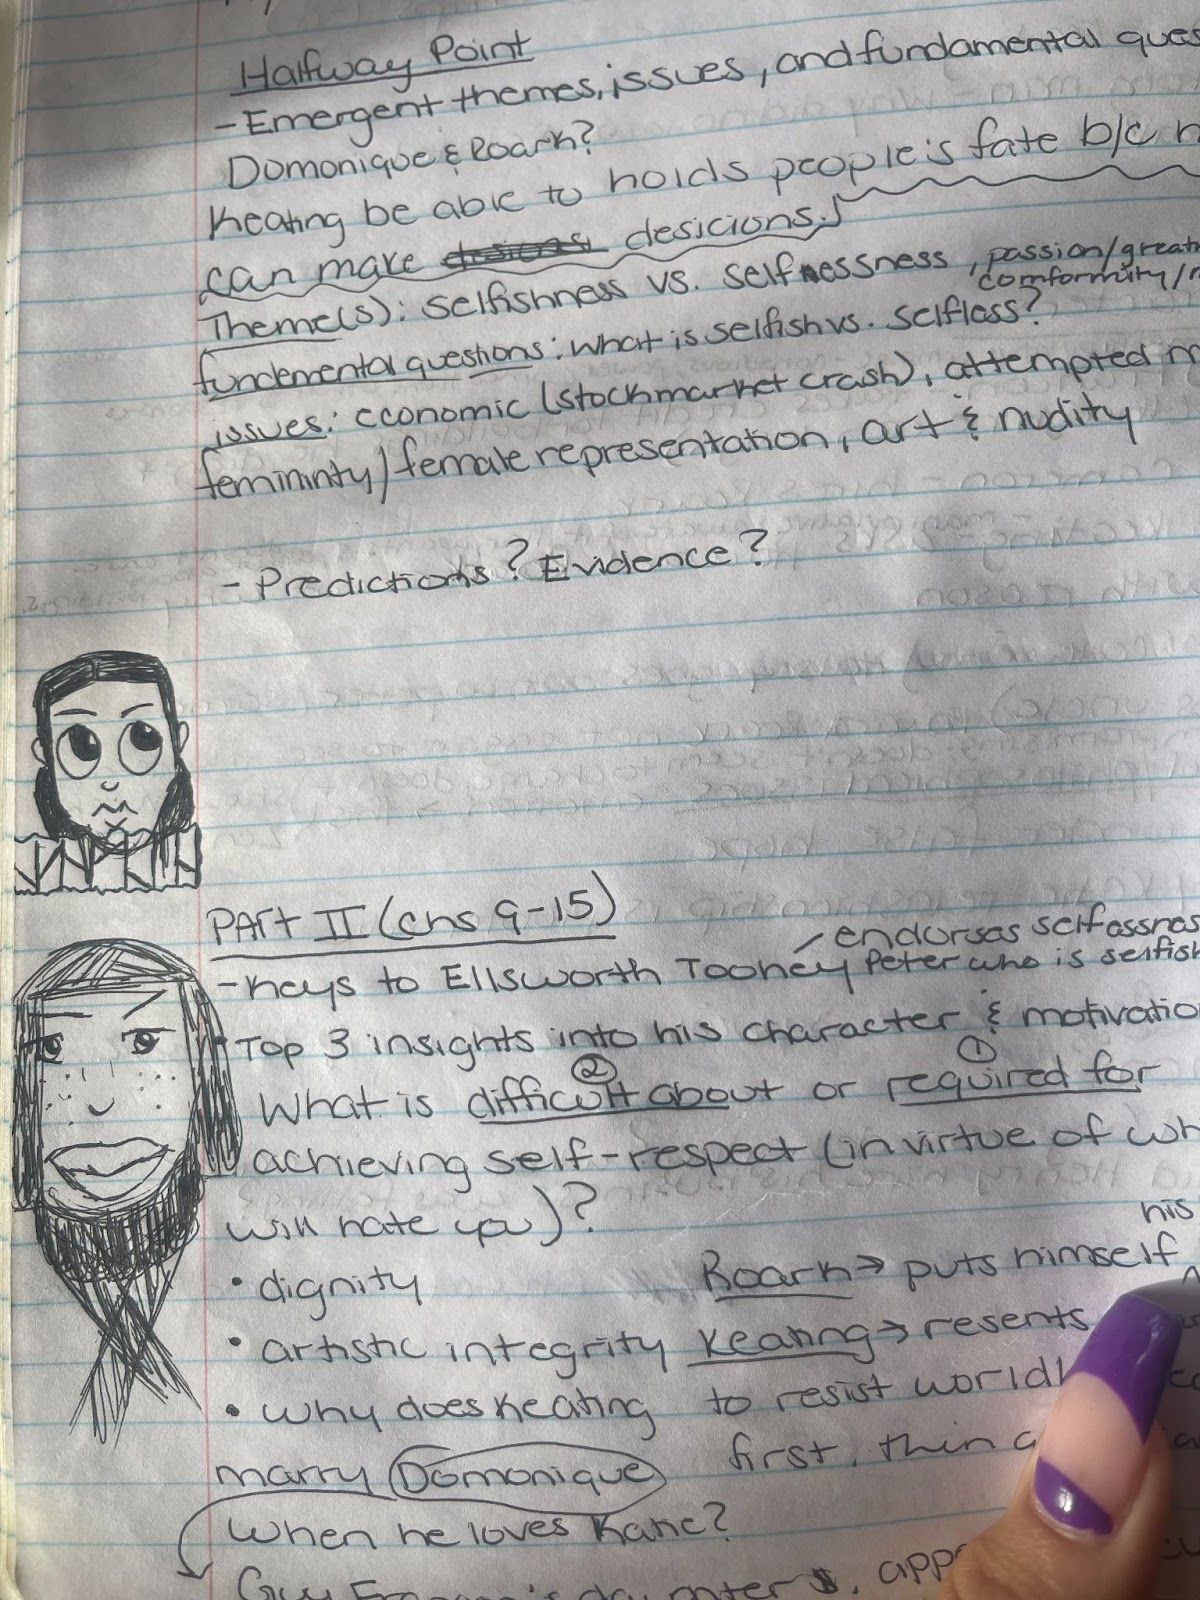 Halfway Point
- Emergent themes, issues, and fundamental ques
Domonique & Roark?
Keating be able to holds people's fate b/c n
can make desicions.
Theme(s): selfishness vs. selfnessness, passion/greatn
comformity/
fundemental questions: what is selfish vs. selfless?
issues: economic (stockmarket crash), attempted m
femininty/female representation, art & nudity
- Predictions? Evidence?
PArt II (chs 9-15)
endorses selflessness
- Keys to Ellsworth Toohey Peter who is selfish
Top 3 insights into his character & motivatio
② ①
What is difficult about or required for
achieving self-respect (in virtue of wh
will hate you)?
his
• dignity Roark → puts himself
• artistic integrity Keating → resents
• why does Keating to resist worldl
marry Domonique first, thin
when he loves Katie?
Guy daughter app